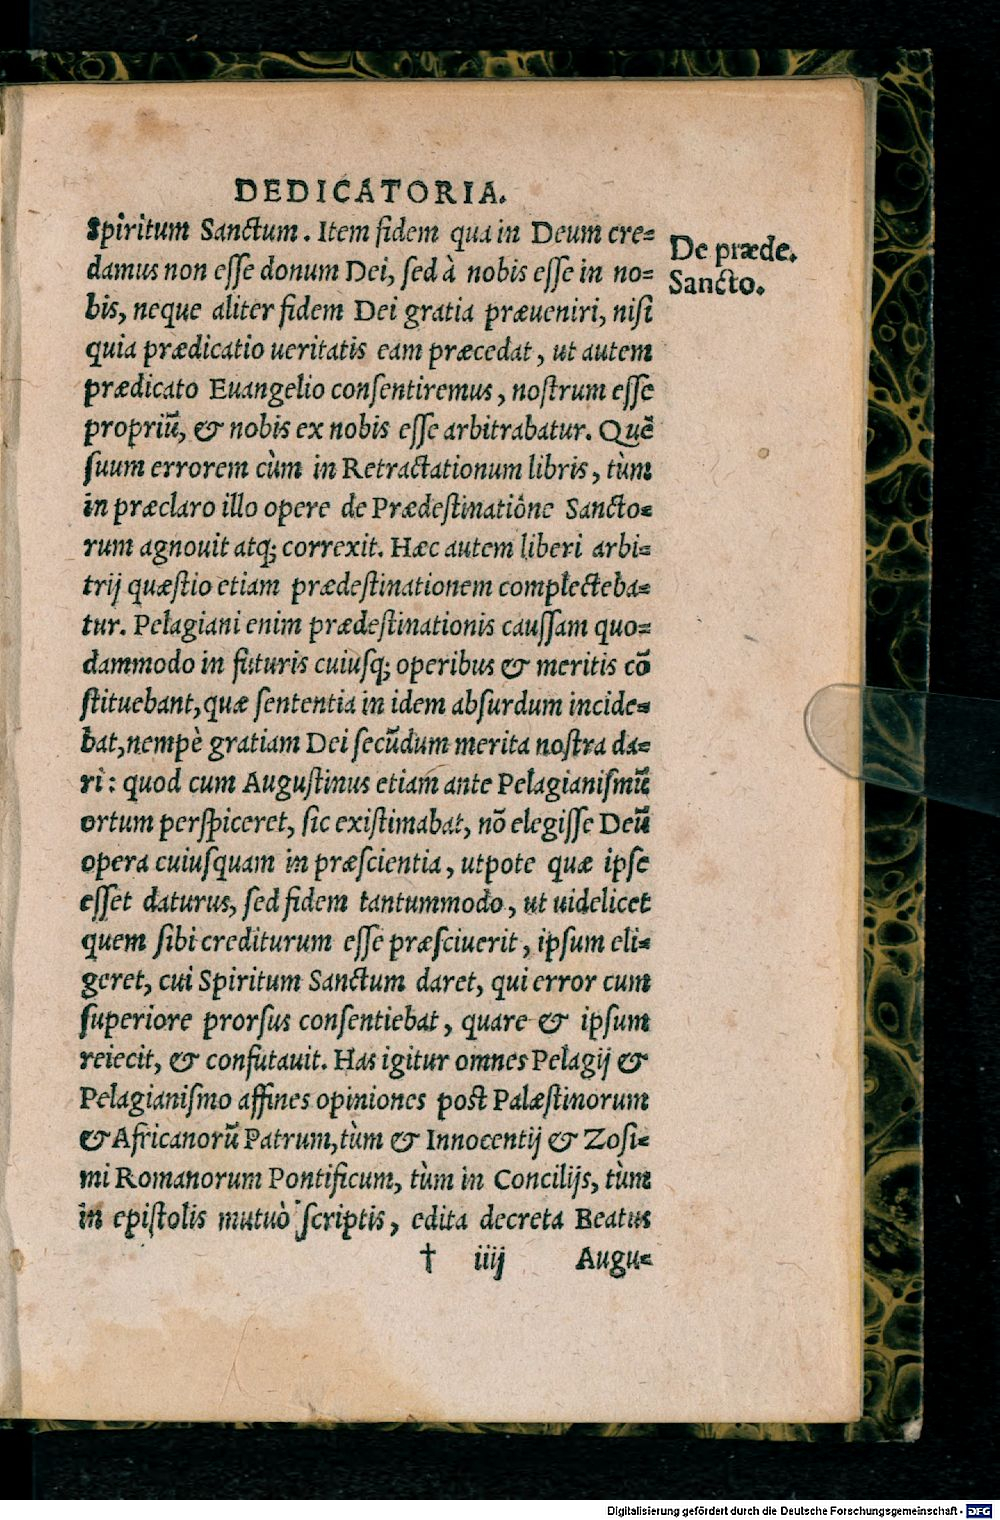 DEDICATORIA.
Spiritum Sanctum. Item fidem qua in Deum cre=
damus non esse donum Dei, sed à nobis esse in no=
bis, neque aliter fidem Dei gratia præueniri, nisi
quia prædicatio ueritatis eam præcedat, ut autem
prædicato Euangelio consentiremus, nostrum esse
propriũ, & nobis ex nobis esse arbitrabatur. Quẽ
suum errorem cùm in Retractationum libris, tùm
in præclaro illo opere de Prædestinatiône Sancto=
rum agnouit atq; correxit. Hæc autem liberi arbi=
trij quæstio etiam prædestinationem complecteba=
tur. Pelagiani enim prædestinationis caussam quo=
dammodo in futuris cuiusq; operibus & meritis cõ
stituebant, quæ sententia in idem absurdum incide=
bat, nempè gratiam Dei secũdum merita nostra da=
ri: quod cum Augustinus etiam ante Pelagianismũ
ortum perspiceret, sic existimabat, nõ elegisse Deũ
opera cuiusquam in præscientia, utpote quæ ipse
esset daturus, sed fidem tantummodo, ut uidelicet
quem sibi crediturum esse præsciuerit, ipsum eli=
geret, cui Spiritum Sanctum daret, qui error cum
superiore prorsus consentiebat, quare & ipsum
reiecit, & confutauit. Has igitur omnes Pelagij &
Pelagianismo affines opiniones post Palæstinorum
& Africanorũ Patrum, tùm & Innocentij & Zosi=
mi Romanorum Pontificum, tùm in Concilijs, tùm
in epistolis mutuò scriptis, edita decreta Beatus
† iiij Augu=
De præde.
Sancto.
Digitalisierung gefördert durch die Deutsche Forschungsgemeinschaft - DFG